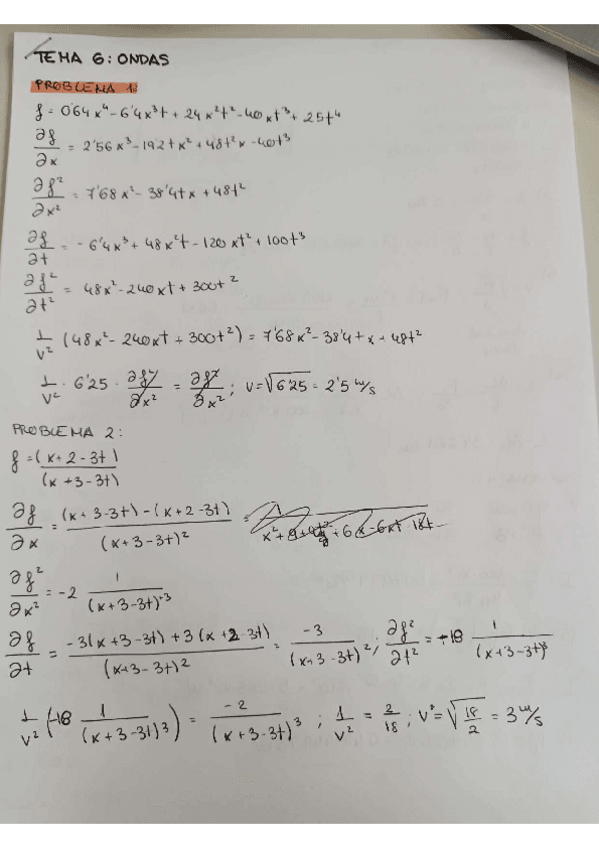 TEMA 6: ONDAS
PROBLEMA 1:
f = 0'64 x⁴ - 6'4 x³t + 24 x²t² - 40 x t³ + 25 t⁴
∂f/∂x = 2'56 x³ - 19'2 t x² + 48 t² x - 40 t³
∂f²/∂x² = 7'68 x² - 38'4 t x + 48 t²
∂f/∂t = - 6'4 x³ + 48 x² t - 120 x t² + 100 t³
∂f²/∂t² = 48 x² - 240 x t + 300 t²
1/v² (48 x² - 240 x t + 300 t²) = 7'68 x² - 38'4 t x + 48 t²
1/v² · 6'25 · ∂f²/∂x² = ∂f²/∂x² ; v = √6'25 = 2'5 m/s
PROBLEMA 2:
f = (x + 2 - 3t)/(x + 3 - 3t)
∂f/∂x = (x + 3 - 3t) - (x + 2 - 3t)/(x + 3 - 3t)² =
∂f²/∂x² = - 2 1/(x + 3 - 3t)³
∂f/∂t = -3(x + 3 - 3t) + 3(x + 2 - 3t)/(x + 3 - 3t)² = -3/(x + 3 - 3t)² ; ∂f²/∂t² = -18 1/(x + 3 - 3t)³
1/v² (-18 1/(x + 3 - 3t)³) = -2/(x + 3 - 3t)³ ; 1/v² = 2/18 ; v² = √18/2 = 3 m/s